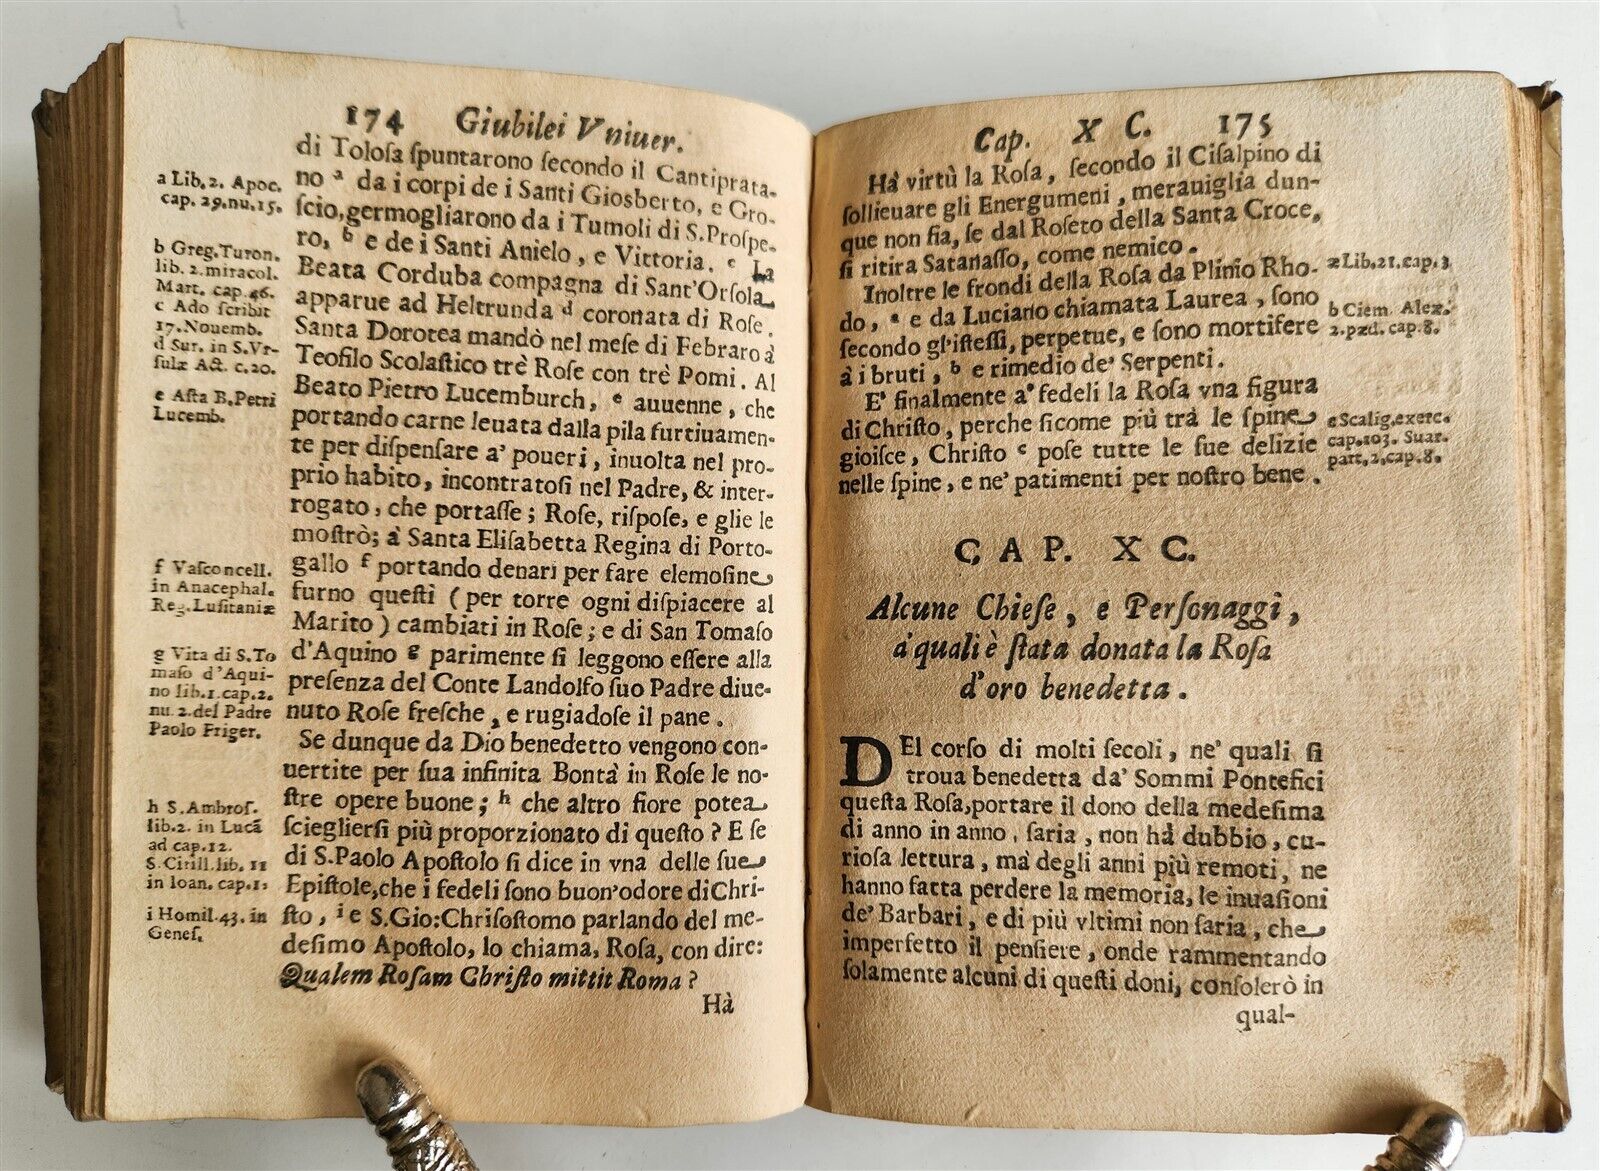 174 Giubilei Vniuer.
di Toloſa ſpuntarono ſecondo il Cantiprata-
no a da i corpi de i Santi Giosberto, e Gro-
ſcio, germogliarono da i Tumoli di S. Proſpe-
ro, b e de i Santi Anielo, e Vittoria. c La
Beata Corduba compagna di Sant'Orſola
apparue ad Heltrunda d coronata di Roſe.
Santa Dorotea mandò nel meſe di Febraro à
Teofilo Scolaſtico trè Roſe con trè Pomi. Al
Beato Pietro Lucemburch, e auuenne, che
portando carne leuata dalla pila furtiuamen-
te per diſpenſare a' poueri, inuolta nel pro-
prio habito, incontratoſi nel Padre, & inter-
rogato, che portaſſe; Roſe, riſpoſe, e glie le
moſtrò; à Santa Eliſabetta Regina di Porto-
gallo f portando denari per fare elemoſine
furno queſti (per torre ogni diſpiacere al
Marito) cambiati in Roſe; e di San Tomaſo
d'Aquino g parimente ſi leggono eſſere alla
preſenza del Conte Landolfo ſuo Padre diue-
nuto Roſe freſche, e rugiadoſe il pane.
Se dunque da Dio benedetto vengono con-
uertite per ſua infinita Bontà in Roſe le no-
ſtre opere buone; h che altro fiore potea
ſciegliersi più proporzionato di queſto? E ſe
di S. Paolo Apoſtolo ſi dice in vna delle ſue
Epiſtole, che i fedeli ſono buon'odore di Chri-
ſto, i e S. Gio: Chriſoſtomo parlando del me-
deſimo Apoſtolo, lo chiama, Roſa, con dire:
Qualem Roſam Chriſto mittit Roma?
Hà
a Lib. 2. Apoc.
cap. 29. nu. 15.
b Greg. Turon.
lib. 2. miracol.
Mart. cap. 46.
c Ado ſcribit
17. Nouemb.
d Sur. in S. Vr-
ſulæ Act. c. 20.
e Aſta B. Petri
Lucemb.
f Vaſconcell.
in Anacephal.
Reg. Luſitaniæ
g Vita di S. To
maſo d'Aqui-
no lib. 1. cap. 2.
nu. 2. del Padre
Paolo Friger.
h S. Ambroſ.
lib. 2. in Lucā
ad cap. 12.
S. Cirill. lib. 11
in Ioan. cap. 1.
i Homil. 43. in
Geneſ.
Cap. X C. 175
Hà virtù la Roſa, ſecondo il Ciſalpino di
ſollieuare gli Energumeni, merauiglia dun-
que non fia, ſe dal Roſeto della Santa Croce,
ſi ritira Satanaſſo, come nemico.
Inoltre le frondi della Roſa da Plinio Rho-
do, a e da Luciano chiamata Laurea, ſono
ſecondo gl'iſteſſi, perpetue, e ſono mortifere
à i bruti, b e rimedio de' Serpenti.
E' finalmente a' fedeli la Roſa vna figura
di Chriſto, perche ſicome più trà le ſpine
gioiſce, Chriſto c poſe tutte le ſue delizie
nelle ſpine, e ne' patimenti per noſtro bene.
a Lib. 21. cap. 3
b Clem. Alex.
2. pæd. cap. 8.
c Scalig. exerc.
cap. 103. Suar.
part. 2. cap. 8.
CAP. XC.
Alcune Chieſe, e Perſonaggi,
à quali è ſtata donata la Roſa
d'oro benedetta.
DEl corſo di molti ſecoli, ne' quali ſi
troua benedetta da' Sommi Pontefici
queſta Roſa, portare il dono della medeſima
di anno in anno, ſaria, non hà dubbio, cu-
rioſa lettura, mà degli anni più remoti, ne
hanno fatta perdere la memoria, le inuaſioni
de' Barbari, e di più vltimi non ſaria, che
imperfetto il penſiere, onde rammentando
ſolamente alcuni di queſti doni, conſolerò in
qual-